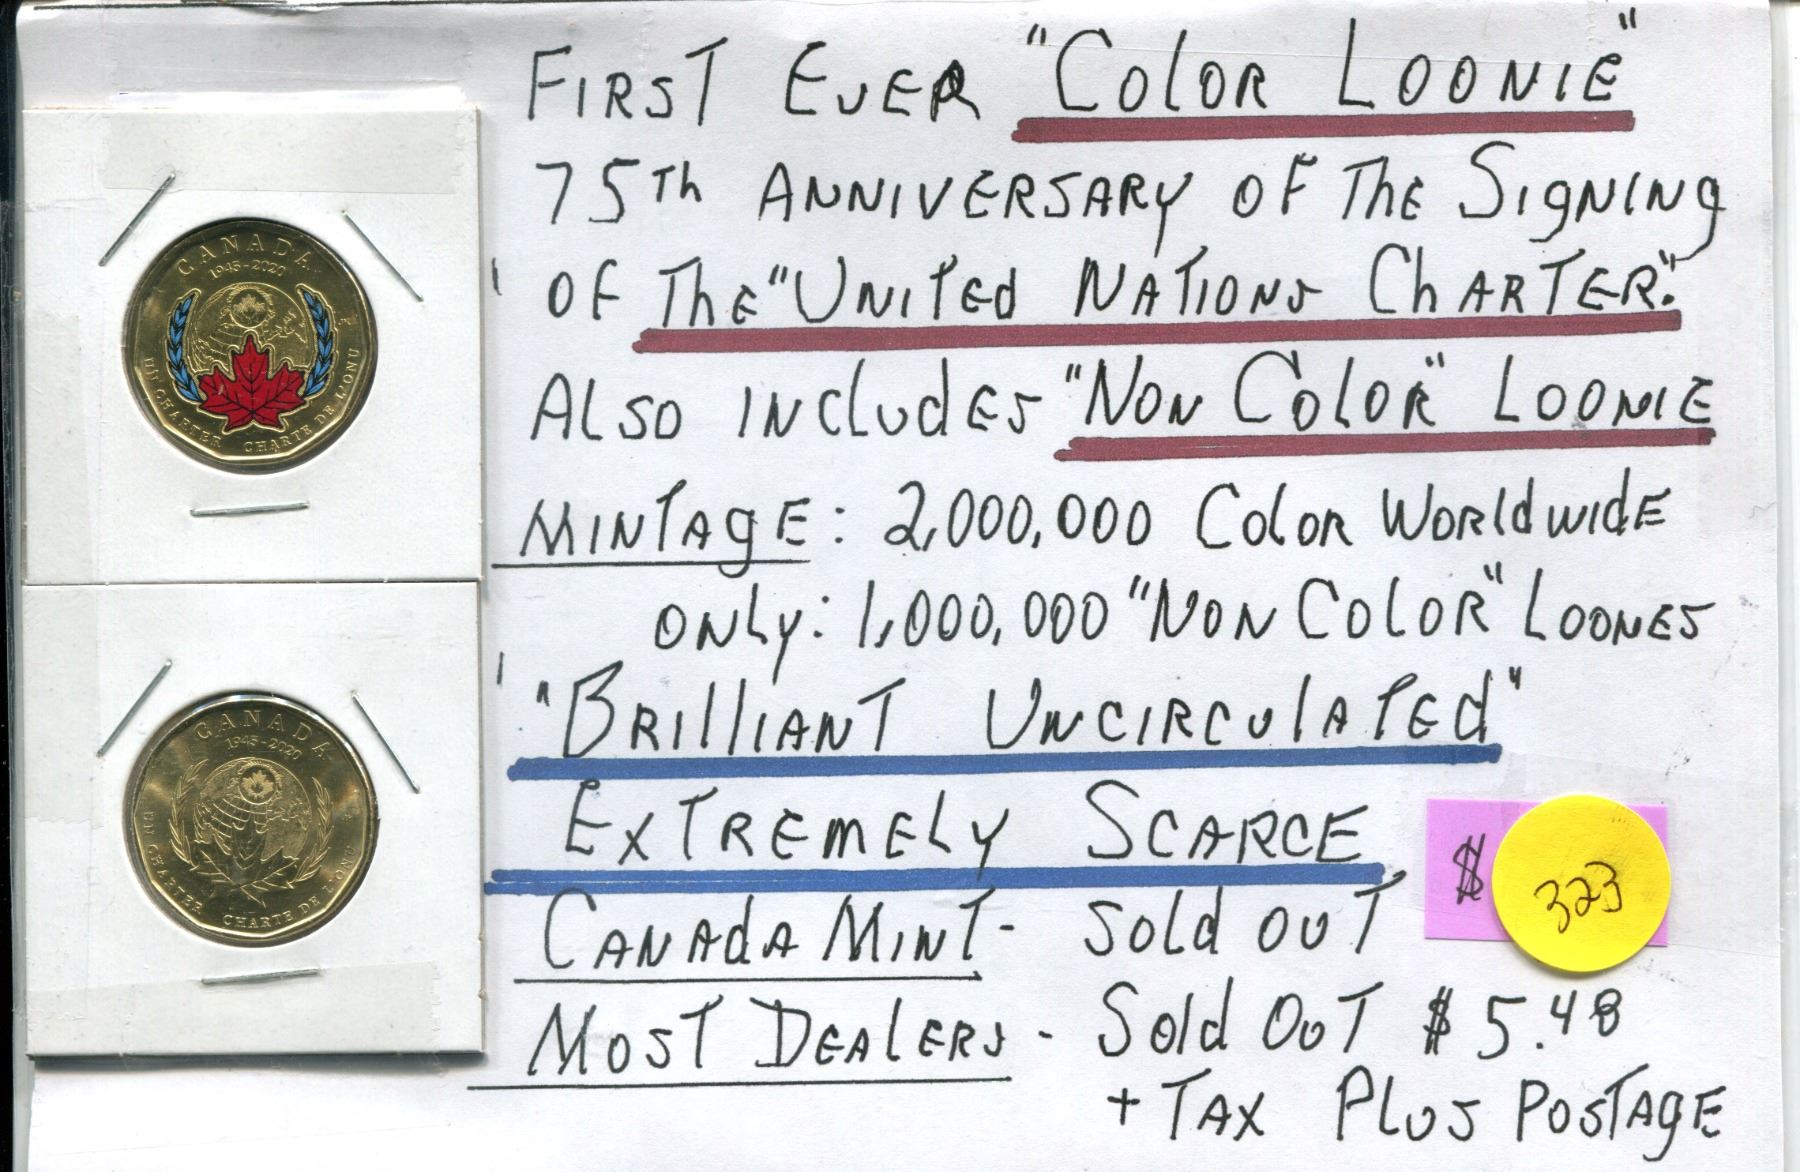 FIRST EVER "COLOR LOONIE"
75TH ANNIVERSARY OF THE SIGNING
OF THE "UNITED NATIONS CHARTER."
ALSO INCLUDES "NON COLOR" LOONIE
MINTAGE: 2,000,000 COLOR WORLDWIDE
ONLY: 1,000,000 "NON COLOR" LOONES
"BRILLIANT UNCIRCULATED"
EXTREMELY SCARCE
$ 323
CANADA MINT- SOLD OUT
MOST DEALERS - SOLD OUT $5.48
+ TAX PLUS POSTAGE
CANADA
1945-2020
UN CHARTER CHARTE DE L'ONU
CANADA
1945-2020
UN CHARTER CHARTE DE L'ONU